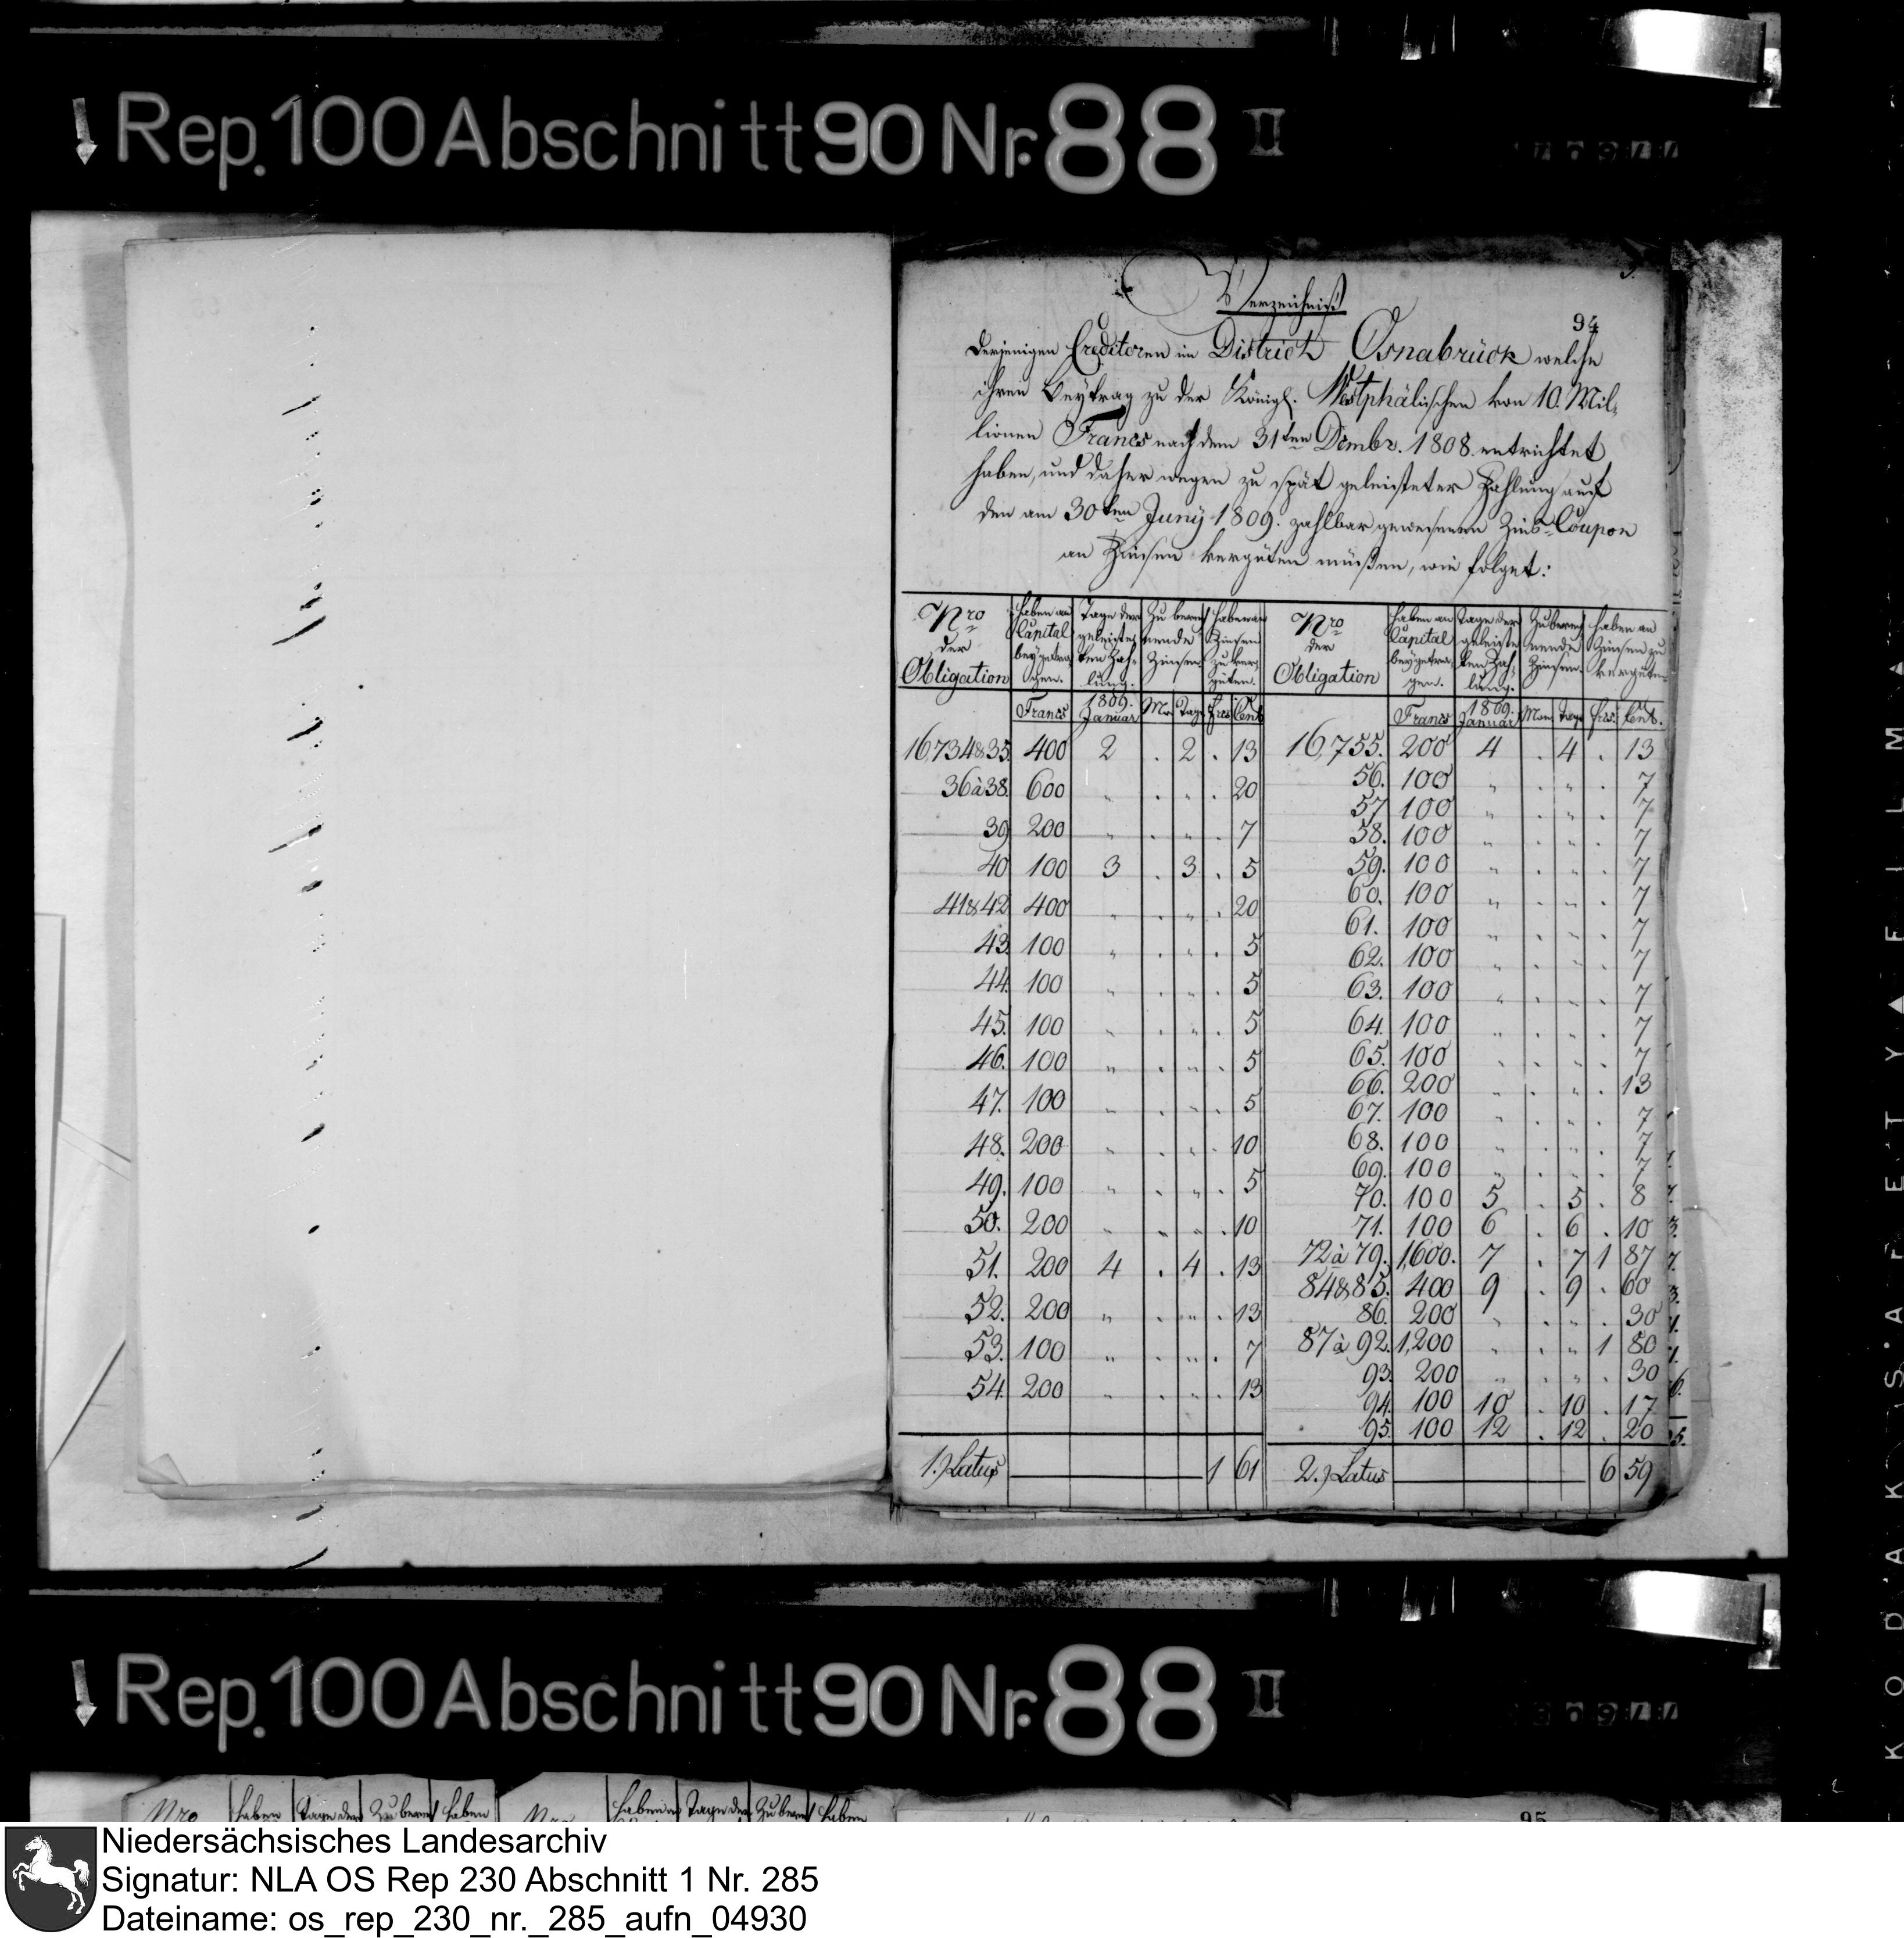 Rep. 100 Abschnitt 90 Nr. 88 II
94
Verzeichniß
derjenigen Creditoren im District Osnabrück welche
ihren Beytrag zu der Königl. Westphälischen von 10. Mil-
lionen Francs nach dem 31ten Dcmbr. 1808. entrichtet
haben, und daher wegen zu spät geleisteter Zahlung auf
den am 30ten Juny 1809. zahlbar gewesenen Zins-Coupon
an Zinsen vergüten müßen, wie folget:
Nro der Obligation | haben an Capital beygetra- gen. | Tage der geleiste- ten Zah- lung. | Zu berech nende Zinsen. | haben an Zinsen zu ver- güten.
Francs | 1809. Januar | Mon | Tage | frcs | Cent
16,734&35. 400 2 . 2 . 13
36 à 38. 600 " . " . 20
39 200 " . " . 7
40 100 3 . 3 . 5
41&42 400 " . " . 20
43. 100 " . " . 5
44. 100 " . " . 5
45. 100 " . " . 5
46. 100 " . " . 5
47. 100 " . " . 5
48. 200 " . " . 10
49. 100 " . " . 5
50. 200 " . " . 10
51. 200 4 . 4 . 13
52. 200 " . " . 13
53. 100 " . " . 7
54. 200 " . " . 13
1.) Latus 1 61
Nro der Obligation | haben an Capital beygetra- gen. | Tage der geleiste ten Zah- lung. | Zu berech nende Zinsen. | haben an Zinsen zu vergüten
Francs | 1809. Januar | Mon. | Tage | frcs. | Cent.
16,755. 200 4 . 4 . 13
56. 100 " . " . 7
57 100 " . " . 7
58. 100 " . " . 7
59. 100 " . " . 7
60. 100 " . " . 7
61. 100 " . " . 7
62. 100 " . " . 7
63. 100 " . " . 7
64. 100 " . " . 7
65. 100 " . " . 7
66. 200 " . " . 13
67. 100 " . " . 7
68. 100 " . " . 7
69. 100 " . " . 7
70. 100 5 . 5 . 8
71. 100 6 . 6 . 10
72 à 79. 1,600. 7 . 7 1 87
84&85. 400 9 . 9 . 60
86. 200 " . " . 30
87 à 92. 1,200 " . " 1 80
93. 200 " . " . 30
94. 100 10 . 10 . 17
95. 100 12 . 12 . 20
2.) Latus 6 59
Rep. 100 Abschnitt 90 Nr. 88 II
Nro haben Tage der Zu berech haben Nro haben an Tage der Zu berech haben
95
KODAK SAFETY FILM
Niedersächsisches Landesarchiv
Signatur: NLA OS Rep 230 Abschnitt 1 Nr. 285
Dateiname: os_rep_230_nr._285_aufn_04930